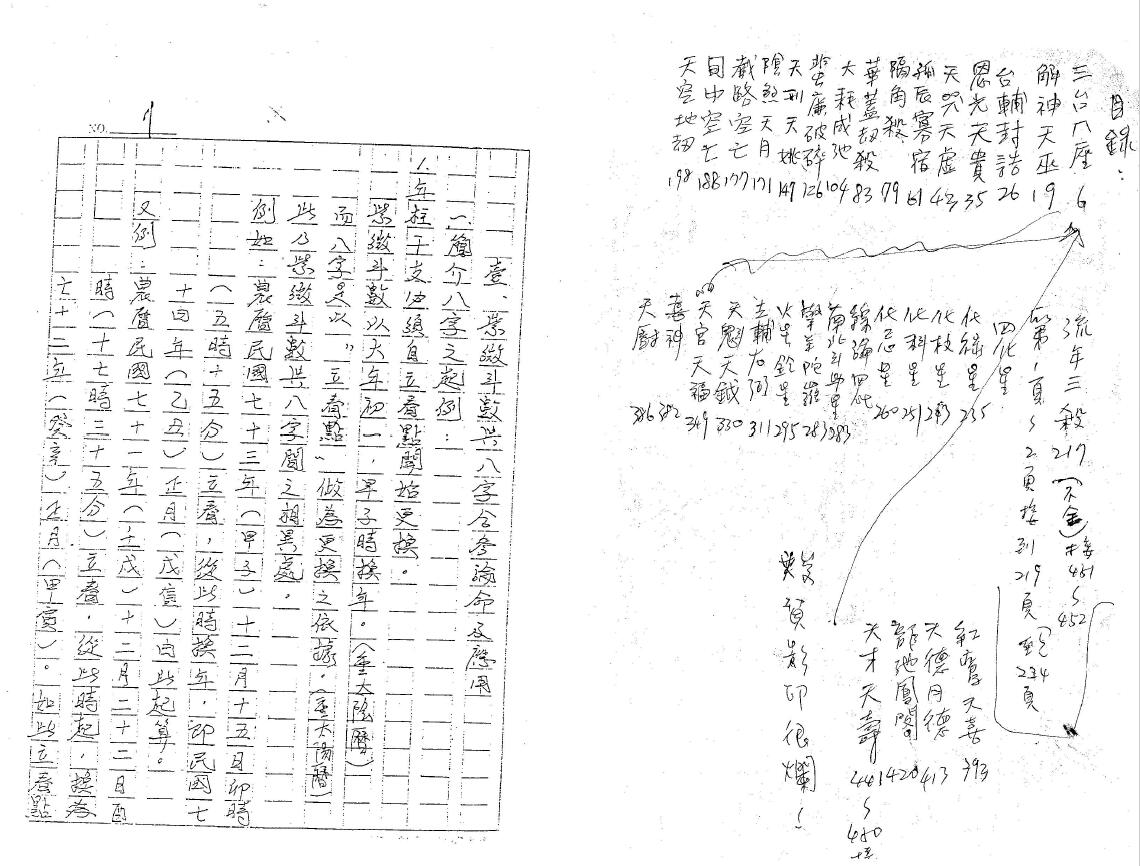 目錄：
三台八座 6
解神天巫 19
台輔封誥 26
恩光天貴 35
天哭天虛 43
孤辰寡宿 61
隔角殺 79
華蓋劫殺 83
大耗咸池 104
蜚廉破碎 126
天刑天姚 147
陰煞天月 171
截路空亡 177
旬中空亡 188
天空地劫 198
流年三殺 217 (不全) 接 451 ~ 452
第1頁~2頁接到219頁到234頁
四化星
化祿星 235
化权星 243
化科星 251
化忌星 260
綜論四化
南北斗學星 283
擎羊陀羅 283
火星鈴星 295
左輔右弼 311
天魁天鉞 330
天官天福 349
喜神 382
天廚 386
紅鸞天喜 393
天德月德 413
龍池鳳閣 420
天才天壽 441 ~ 450
影印很爛！
NO. 1
壹、紫微斗數與八字合參論命及應用
一、簡介八字之起例：
1.年柱干支必須自立春點開始更換。
紫微斗數以大年初一，早子時換年。(重太陰曆)
而八字是以“立春點”做為更換之依據。(重太陽曆)
此乃紫微斗數與八字間之相異處。
例如：農曆民國七十三年(甲子)十二月十五日卯時
(五時十五分)立春，從此時換年，即民國七
十四年(乙丑)正月(戊寅)由此起算。
又例：農曆民國七十一年(壬戌)十二月二十二日酉
時(十七時三十五分)立春，從此時起，換為
七十二年(癸亥)正月(甲寅)。如此立春點